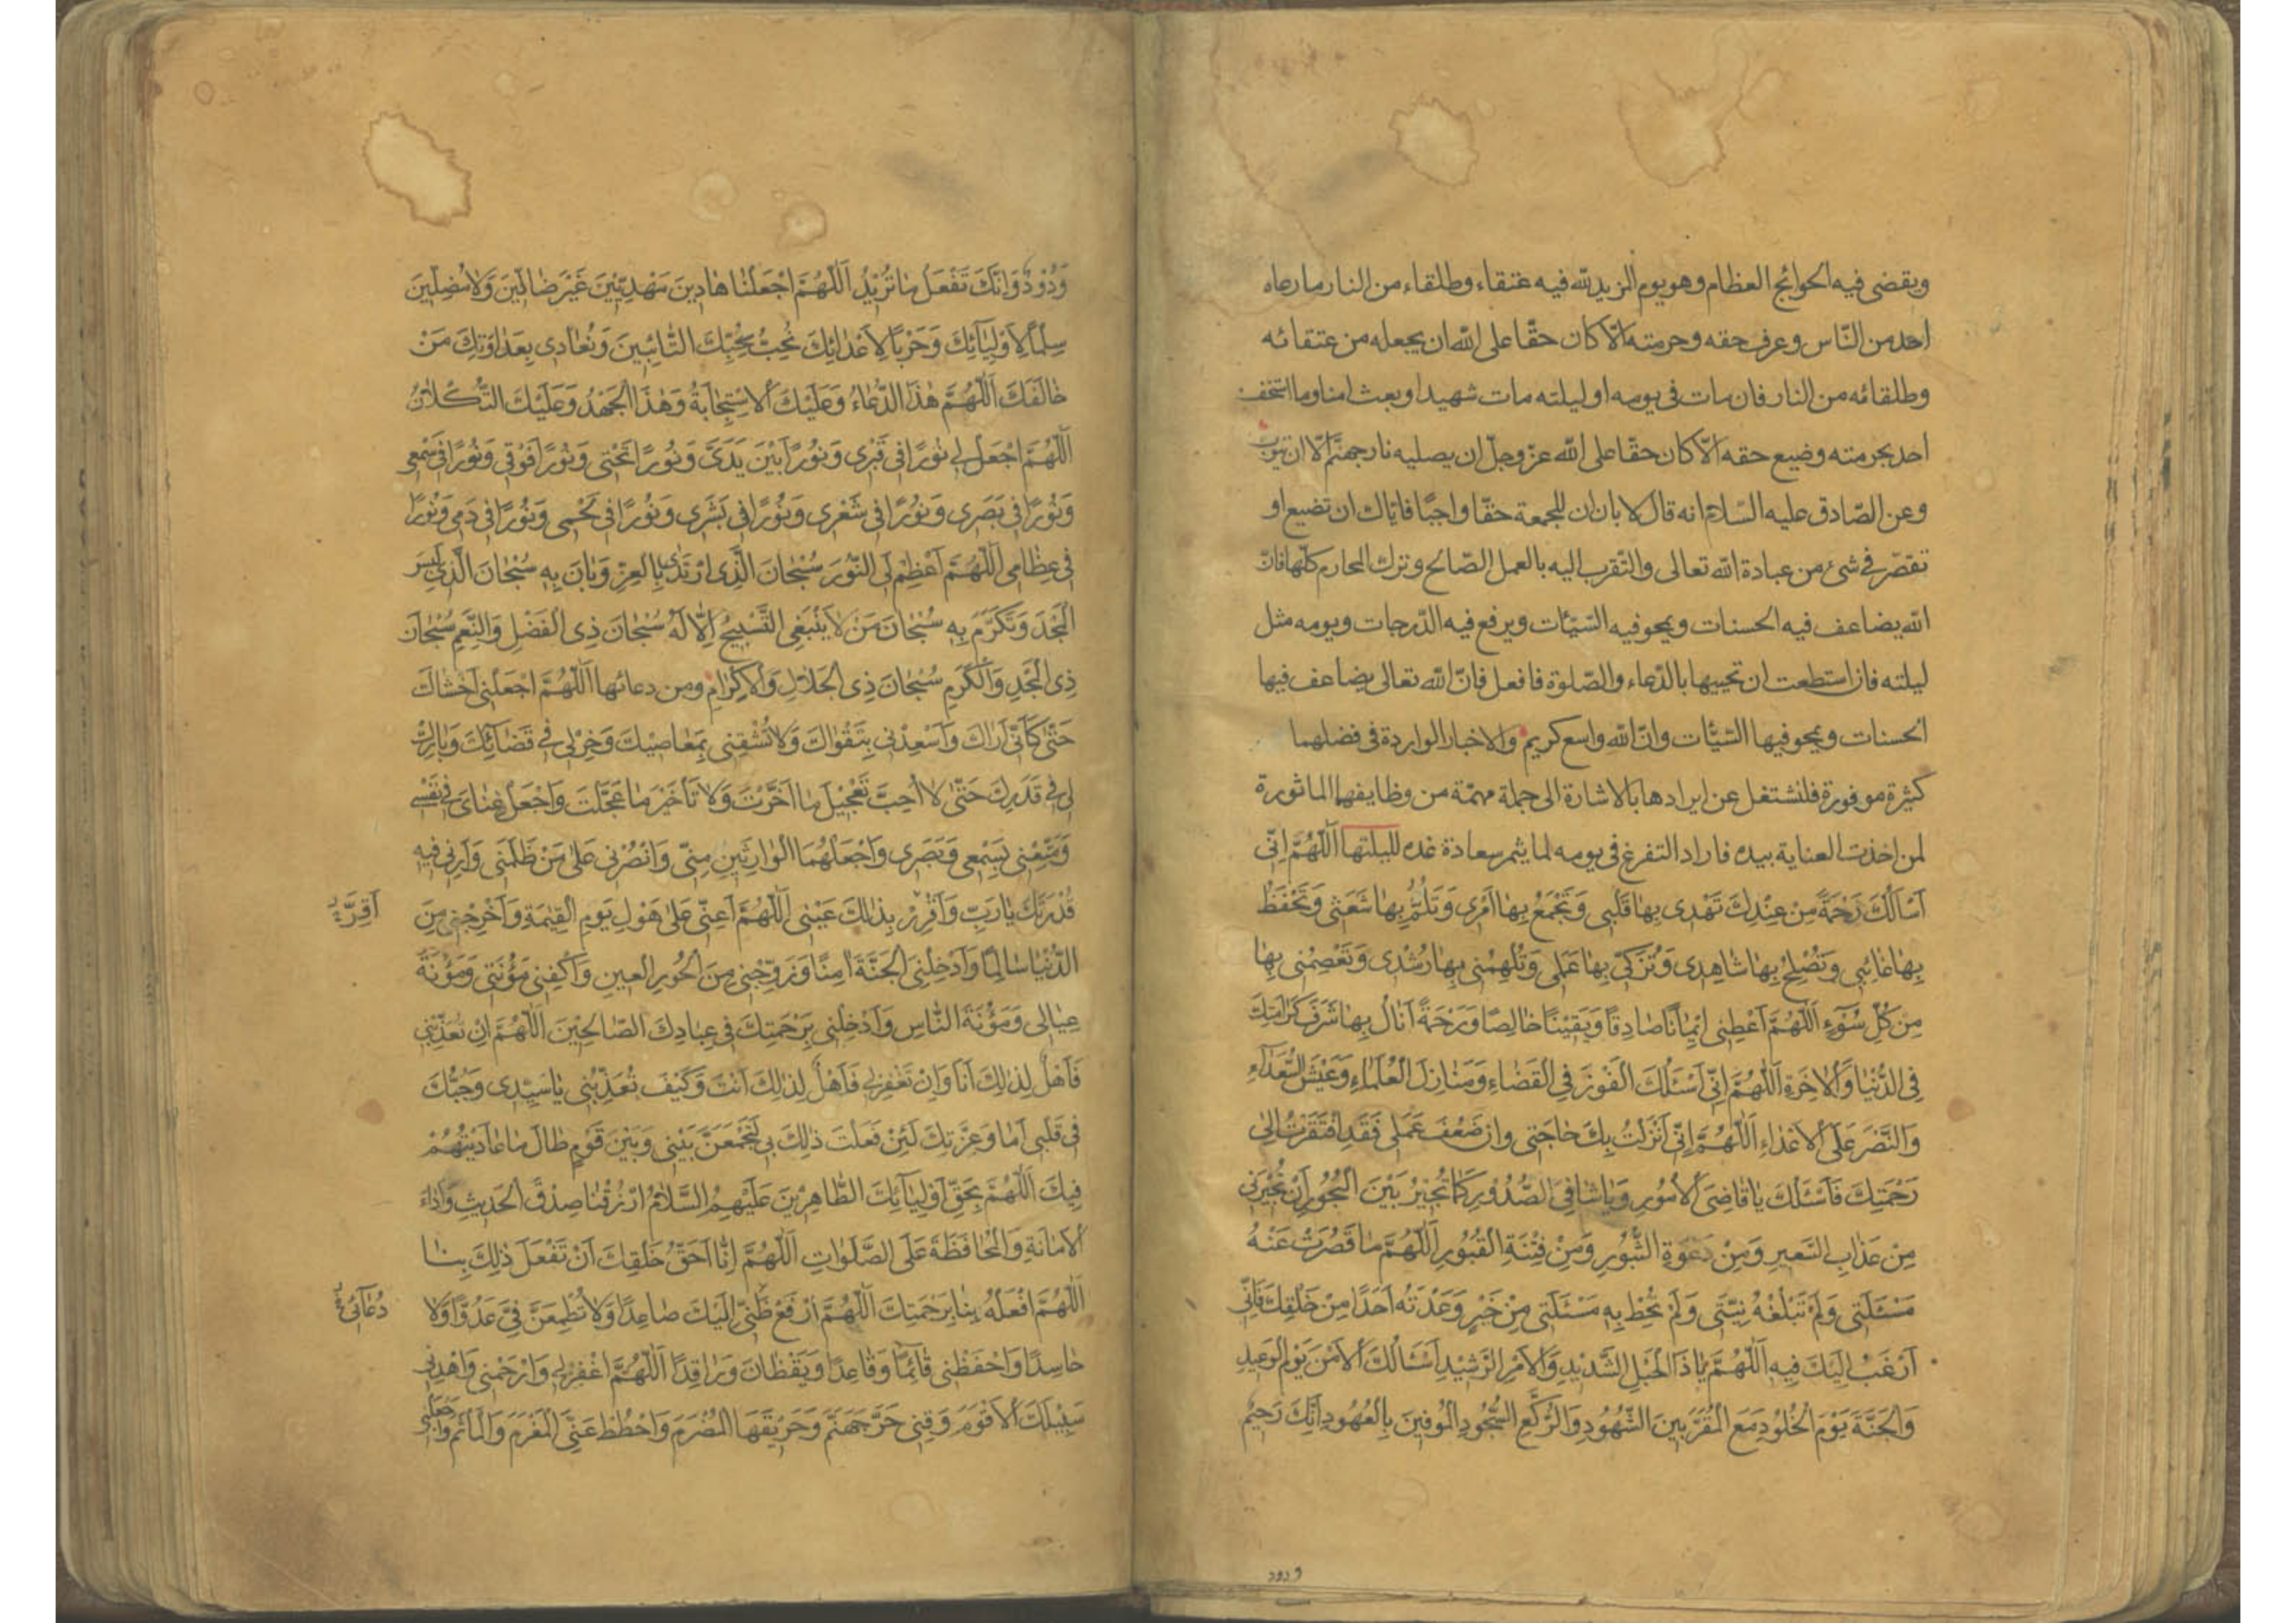 ويقضى فيه الحوائج العظام وهو يوم المزيد لله فيه عتقاء وطلقاء من النار ما رعاه
احد من النّاس وعرف حقه وحرمته الّا كان حقّا على الله ان يجعله من عتقائه
وطلقائه من النار فان مات فى يومه او ليلته مات شهيدا وبعث امنا وما استخف
احد بحرمته وضيع حقه الّا كان حقّا على الله عزّ وجلّ ان يصليه نار جهنّم الّا ان يتوب
وعن الصّادق عليه السّلام انه قال لابان ان للجمعة حقّا واجبًا فايّاك ان تضيع او
تقصّر فى شئ من عبادة الله تعالى والتّقرب اليه بالعمل الصّالح وترك المحارم كلّها فانّ
الله يضاعف فيه الحسنات ويمحو فيه السّيّات ويرفع فيه الدّرجات ويومه مثل
ليلته فان استطعت ان تحييها بالدّعاء والصّلوة فافعل فانّ الله تعالى يضاعف فيها
الحسنات ويمحو فيها السّيّات وانّ الله واسع كريم والاخبار الواردة فى فضلهما
كثيرة موفورة فلنشتغل عن ايرادها بالاشارة الى جملة مهمّة من وظايفهما الماثورة
لمن اخذت العناية بيده فاراد التفرغ فى يومه لما يثمر سعادة غده لليلتها اَللّٰهُمَّ اِنّى
اَسْاَلُكَ رَحْمَةً مِنْ عِنْدِكَ تَهْدى بِهٰا قَلْبى وَتَجْمَعُ بِهٰا اَمْرى وَتَلُمُّ بِهٰا شَعَثى وَتَحْفَظُ
بِهٰا غٰائِبى وَتُصْلِحُ بِهٰا شٰاهِدى وَتُزَكّى بِهٰا عَمَلى وَتُلْهِمُنى بِهٰا رُشْدى وَتَعْصِمُنى بِهٰا
مِنْ كُلِّ سُوٓءٍ اَللّٰهُمَّ اَعْطِنى ايمٰانًا صٰادِقًا وَيَقينًا خٰالِصًا وَرَحْمَةً اَنٰالُ بِهٰا شَرَفَ كَرٰامَتِكَ
فِى الدُّنْيٰا وَالْاٰخِرَةِ اَللّٰهُمَّ اِنّى اَسْئَلُكَ الْفَوْزَ فِى الْقَضٰاءِ وَمَنٰازِلَ الْعُلَمٰاءِ وَعَيْشَ السُّعَدٰٓاءِ
وَالنَّصْرَ عَلَى الْاَعْدٰاءِ اَللّٰهُمَّ اِنّى اَنْزَلْتُ بِكَ حٰاجَتى وَاِنْ ضَعُفَ عَمَلى فَقَدِ افْتَقَرْتُ اِلىٰ
رَحْمَتِكَ فَاَسْئَلُكَ يٰا قٰاضِىَ الْاُمُورِ وَيٰا شٰافِىَ الصُّدُورِ كَمٰا تُجيرُ بَيْنَ الْبُحُورِ اَنْ تُجيرَنى
مِنْ عَذٰابِ السَّعيرِ وَمِنْ دَعْوَةِ الثُّبُورِ وَمِنْ فِتْنَةِ الْقُبُورِ اَللّٰهُمَّ مٰا قَصُرَتْ عَنْهُ
مَسْئَلَتى وَلَمْ تَبْلُغْهُ نِيَّتى وَلَمْ تُحِطْ بِهِ مَسْئَلَتى مِنْ خَيْرٍ وَعَدْتَهُ اَحَدًا مِنْ خَلْقِكَ فَاِنّى
اَرْغَبُ اِلَيْكَ فيهِ اَللّٰهُمَّ يٰا ذَا الْحَبْلِ الشَّديدِ وَالْاَمْرِ الرَّشيدِ اَسْئَالُكَ الْاَمْنَ يَوْمَ الْوَعيدِ
وَالْجَنَّةَ يَوْمَ الْخُلُودِ مَعَ الْمُقَرَّبينَ الشُّهُودِ وَالرُّكَّعِ السُّجُودِ الْمُوفينَ بِالْعُهُودِ اِنَّكَ رَحيمٌ
ودود
وَدُودٌ وَاِنَّكَ تَفْعَلُ مٰا تُريْدُ اَللّٰهُمَّ اجْعَلْنٰا هٰادينَ مَهْدِيّينَ غَيْرَ ضٰالّينَ وَلٰا مُضِلّينَ
سِلْمًا لِاَوْلِيٰآئِكَ وَحَرْبًا لِاَعْدٰائِكَ نُحِبُّ بِحُبِّكَ التّٰائِبينَ وَنُعٰادى بِعَدٰاوَتِكَ مَنْ
خٰالَفَكَ اَللّٰهُمَّ هٰذَا الدُّعٰاءُ وَعَلَيْكَ الْاِسْتِجٰابَةُ وَهٰذَا الْجَهْدُ وَعَلَيْكَ التُّكْلٰانُ
اَللّٰهُمَّ اجْعَلْ لى نُورًا فى قَبْرى وَنُورًا بَيْنَ يَدَىَّ وَنُورًا تَحْتى وَنُورًا فَوْقى وَنُورًا فى سَمْعى
وَنُورًا فى بَصَرى وَنُورًا فى شَعْرى وَنُورًا فى بَشَرى وَنُورًا فى لَحْمى وَنُورًا فى دَمى وَنُورًا
فى عِظٰامى اَللّٰهُمَّ اَعْظِمْ لِىَ النُّورَ سُبْحٰانَ الَّذِى ارْتَدٰى بِالْعِزِّ وَبٰانَ بِهِ سُبْحٰانَ الَّذى لَبِسَ
الْمَجْدَ وَتَكَرَّمَ بِهِ سُبْحٰانَ مَنْ لٰا يَنْبَغِى التَّسْبيحُ اِلّٰا لَهُ سُبْحٰانَ ذِى الْفَضْلِ وَالنِّعَمِ سُبْحٰانَ
ذِى الْمَجْدِ وَالْكَرَمِ سُبْحٰانَ ذِى الْجَلٰالِ وَالْاِكْرٰامِ ومن دعائها اَللّٰهُمَّ اجْعَلْنى اَخْشٰاكَ
حَتّٰى كَاَنّى اَرٰاكَ وَاَسْعِدْنى بِتَقْوٰاكَ وَلٰا تُشْقِنى بِمَعٰاصيكَ وَخِرْ لى فى قَضٰآئِكَ وَبٰارِكْ
لى فى قَدَرِكَ حَتّٰى لٰا اُحِبَّ تَعْجيلَ مٰا اَخَّرْتَ وَلٰا تَأْخيرَ مٰا عَجَّلْتَ وَاجْعَلْ غِنٰاىَ فى نَفْسى
وَمَتِّعْنى بِسَمْعى وَبَصَرى وَاجْعَلْهُمَا الْوٰارِثَيْنِ مِنّى وَانْصُرْنى عَلىٰ مَنْ ظَلَمَنى وَاَرِنى فيهِ
قُدْرَتَكَ يٰا رَبِّ وَاَقْرِرْ بِذٰلِكَ عَيْنى اَللّٰهُمَّ اَعِنّى عَلىٰ هَوْلِ يَوْمِ الْقِيٰمَةِ وَاَخْرِجْنى مِنَ
اَقِرَّ
الدُّنْيٰا سٰالِمًا وَاَدْخِلْنِى الْجَنَّةَ اٰمِنًا وَزَوِّجْنى مِنَ الْحُورِ الْعينِ وَاكْفِنى مَؤُنَتى وَمَؤُنَةَ
عِيٰالى وَمَؤُنَةَ النّٰاسِ وَاَدْخِلْنى بِرَحْمَتِكَ فى عِبٰادِكَ الصّٰالِحينَ اَللّٰهُمَّ اِنْ تُعَذِّبْنى
فَاَهْلٌ لِذٰلِكَ اَنَا وَاِنْ تَغْفِرْ لى فَاَهْلٌ لِذٰلِكَ اَنْتَ وَكَيْفَ تُعَذِّبُنى يٰا سَيِّدى وَحُبُّكَ
فى قَلْبى اَمٰا وَعِزَّتِكَ لَئِنْ فَعَلْتَ ذٰلِكَ بى لَتَجْمَعَنَّ بَيْنى وَبَيْنَ قَوْمٍ طٰالَ مٰا عٰادَيْتُهُمْ
فيكَ اَللّٰهُمَّ بِحَقِّ اَوْلِيٰآئِكَ الطّٰاهِرينَ عَلَيْهِمُ السَّلٰامُ ارْزُقْنٰا صِدْقَ الْحَديثِ وَاَدٰاءَ
الْاَمٰانَةِ وَالْمُحٰافَظَةَ عَلَى الصَّلَوٰاتِ اَللّٰهُمَّ اِنّٰا اَحَقُّ خَلْقِكَ اَنْ تَفْعَلَ ذٰلِكَ بِنٰا
اَللّٰهُمَّ افْعَلْهُ بِنٰا بِرَحْمَتِكَ اَللّٰهُمَّ ارْفَعْ ظَنّى اِلَيْكَ صٰاعِدًا وَلٰا تُطْمِعَنَّ فِىَّ عَدُوًّا وَلٰا
دُعٰآئى
حٰاسِدًا وَاحْفَظْنى قٰائِمًا وَقٰاعِدًا وَيَقْظٰانَ وَرٰاقِدًا اَللّٰهُمَّ اغْفِرْ لى وَارْحَمْنى وَاهْدِنى
سَبيلَكَ الْاَقْوَمَ وَقِنى حَرَّ جَهَنَّمَ وَحَريقَهَا الْمُضْرَمَ وَاحْطُطْ عَنِّى الْمَغْرَمَ وَالْمَأْثَمَ وَاجْعَلْنى